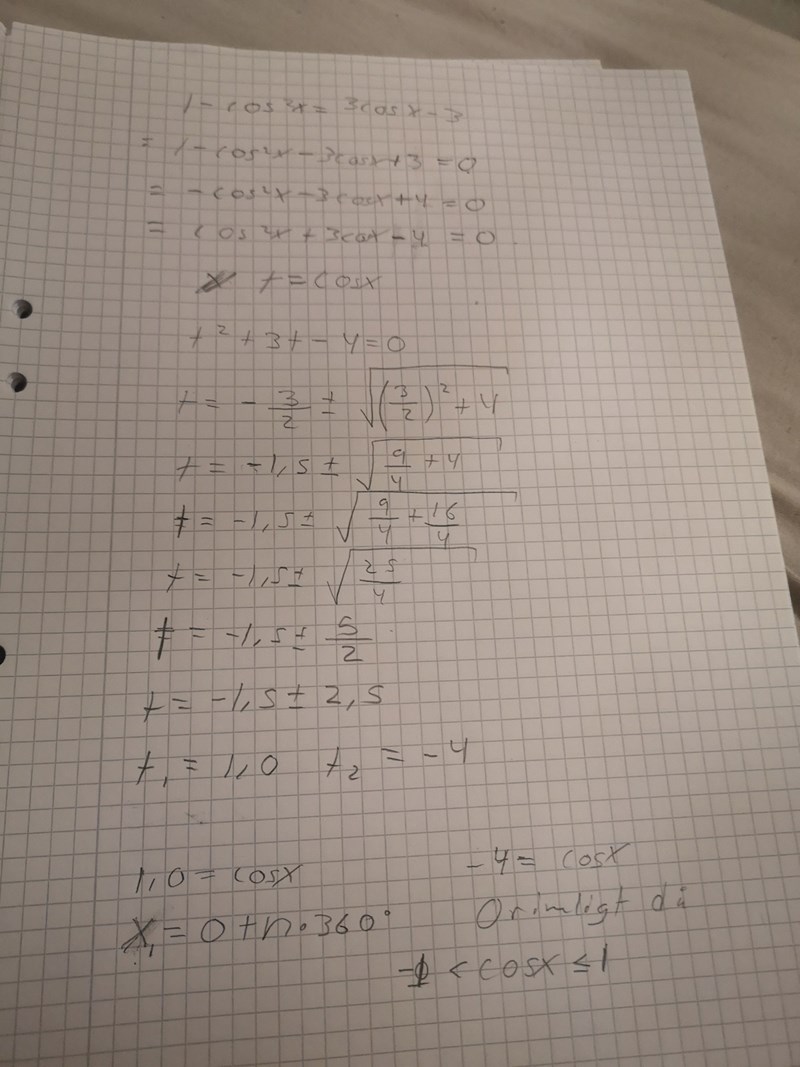 1 - cos²x = 3cosx - 3
= 1 - cos²x - 3cosx + 3 = 0
= -cos²x - 3cosx + 4 = 0
= cos²x + 3cosx - 4 = 0
t = cosx
t² + 3t - 4 = 0
t = - 3/2 ± √((3/2)² + 4)
t = -1,5 ± √(9/4 + 4)
t = -1,5 ± √(9/4 + 16/4)
t = -1,5 ± √(25/4)
t = -1,5 ± 5/2
t = -1,5 ± 2,5
t₁ = 1,0 t₂ = -4
1,0 = cosx
x₁ = 0 + n·360°
-4 = cosx
Orimligt då
-1 < cosx ≤ 1